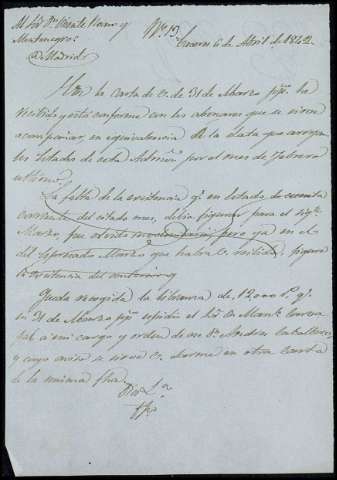 Al Sor. Dn. Vicente Cano y Nº 13.
Montenegro. Caceres 6 de Abril de 1842.
Madrid
Con la carta de V. de 31 de Marzo ppº. he
recibido y está conforme con los abonares que se sirve
acompañar, en equivalencia de la data que arroja
los Estados de esta Admon. por el mes de Febrero
ultimo.
La falta de la existencia qe. en Estado de cuenta
corriente del citado mes, debia figurar para el sigte.
Marzo, fue ya en el
del espresado Marzo que habrá V. recibido, figura
la existencia del anterior
Queda recogida la libranza de 12,000 rs. qe.
en 31 de Marzo ppº. espidió el Sor. Dn. Manl.
á mi cargo y orden de Dn. Andres Caballero,
y cuyo aviso se sirve V. darme en otra carta
de la misma fha.
Dios